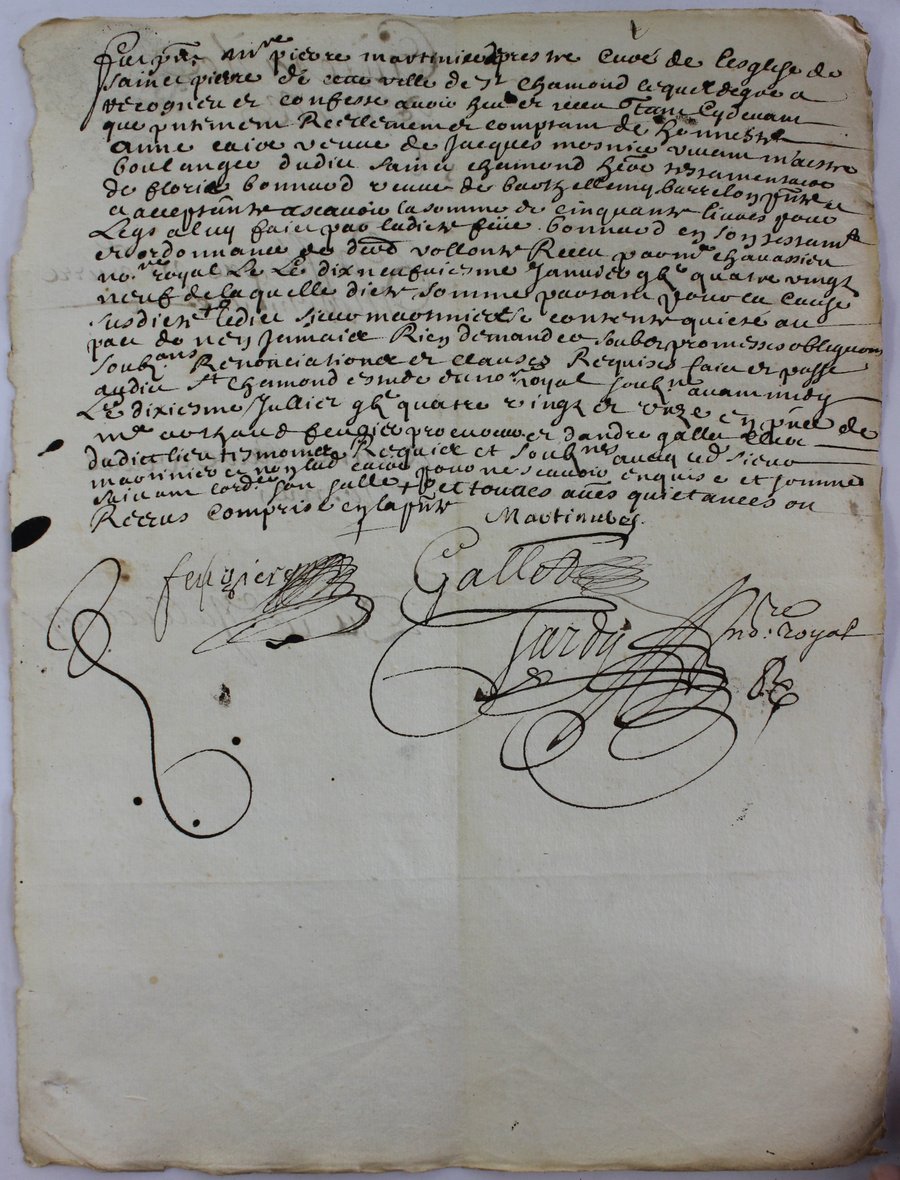 Fut pnt. mre pierre martinier prestre curé de lesglise de
sainct pierre de cette ville de st chamond lequel de gré a
recogneu et confesse avoir heu et receu tant cydevant
que pntement Reellement et comptant de honneste
anne vefve de Jacques vivant maistre
boulanger dudict sainct chamond here testamentaire
de florie bonnard vefve de barthellemy barrelon pnte et
acceptante ascavoir la somme de cinquante livres pour
Legs a luy faict par ladicte feüe bonnard en son testamt
et ordonnance de vollonte Receu par me chavassieu
nore royal Le dixneufviesme Janvier quatre vingt
neuf de laquelle dicte somme partant pour la cause
susdicte ledict sieur martinier se contente quicte au
pact de nen Jamais Rien demander soubz promesses obligaons
soubzons Renonciations et clauses Requises faict et passé
audict st chamond estude du nore royal soubzne avant midy
Le dixiesme Juillet quatre vingt et unze en pnce de
me procureur et dandre gallet clerc
dudict lieu tesmoins Requis et soubznes avecq led sieur
martinier et non lad pour ne scavoir enquise et sommée
suivant lordce gallet + et touttes aues quietances ou
Receus comprise en la pnte Martinier
Gallet
Tardy nore royal